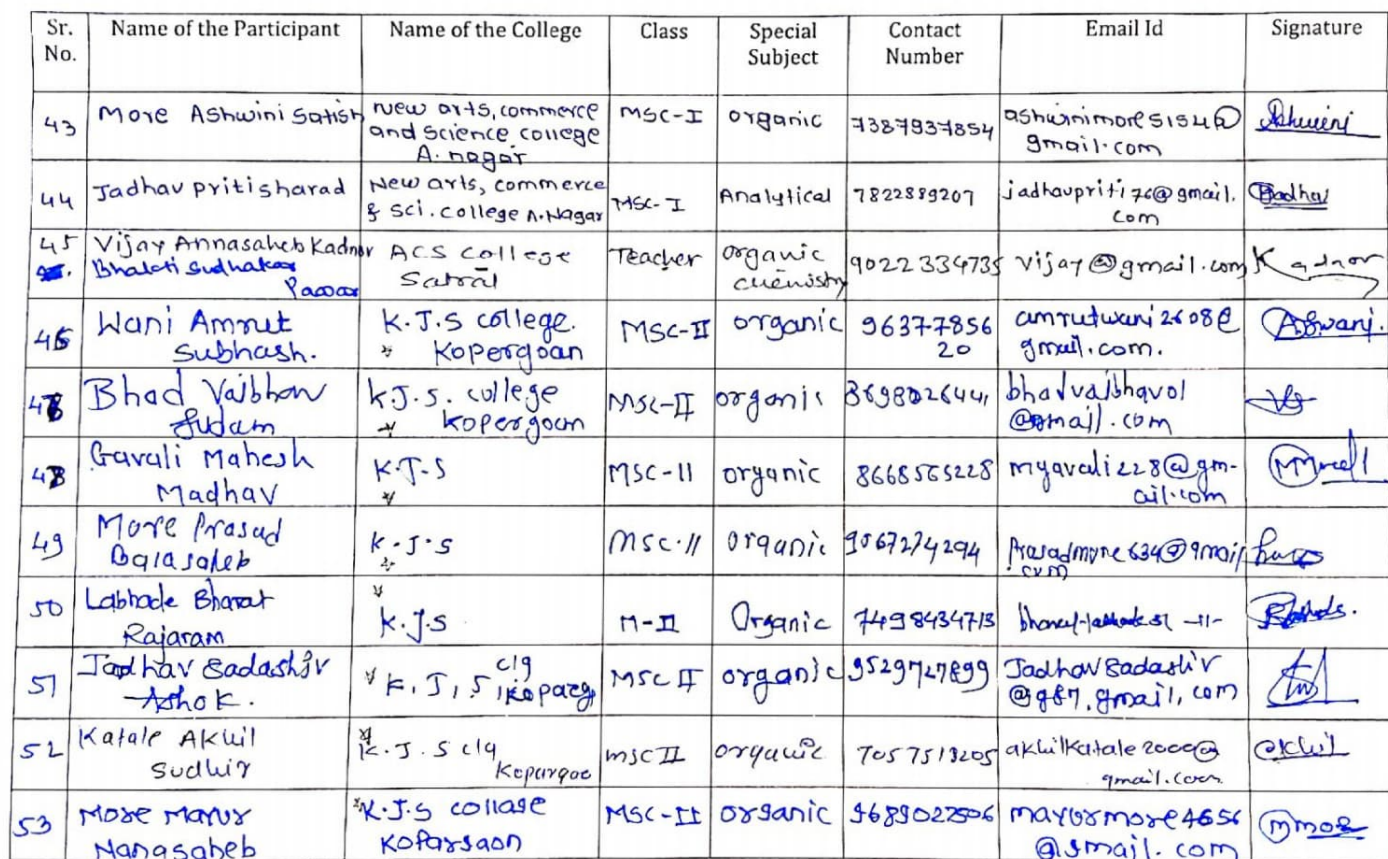 Sr. No. Name of the Participant Name of the College Class Special Subject Contact Number Email Id Signature
43 More Ashwini Satish New arts, commerce and science college A. nagar MSC-I organic 7387937854 ashwinimore5154@gmail.com Ashwini
44 Jadhav priti sharad New arts, commerce & sci. college A. Nagar MSC-I Analytical 7822889207 jadhavpriti76@gmail.com Jadhav
45 Vijay Annasaheb Kadnor Bhakti Sudhakar Pawar ACS college Satral Teacher organic chemistry 9022334735 vijay@gmail.com Kadnor
46 Wani Amrut Subhash. K.J.S college. Kopergoan MSC-II organic 9637785620 amrutwani2608@gmail.com. A.S.wani.
47 Bhad Vaibhav Sudam K.J.S. college Kopergoan MSC-II organic 8698026441 bhadvaibhav01@gmail.com
48 Gavali Mahesh Madhav K.J.S MSC-II organic 8668565228 mgavali228@gm-ail.com
49 More Prasad Balasaheb K.J.S MSC-II organic Prasadmore634@gmail.com
50 Labhade Bharat Rajaram K.J.S M-II Organic 7498434713 -11-
51 Jadhav Sadashiv Ashok. K.J.S clg Koparg MSC II organic 9529727899 Jadhav Sadashiv @987.gmail.com
52 Katale Akhil Sudhir K.J.S clg Kopargoa MSC II organic 7057513205 akhilkatale2000@gmail.com akhil
53 More Mayur Nanasaheb K.J.S collage Kopargaon MSC-II organic 9689022806 mayurmore4656@gmail.com mmore